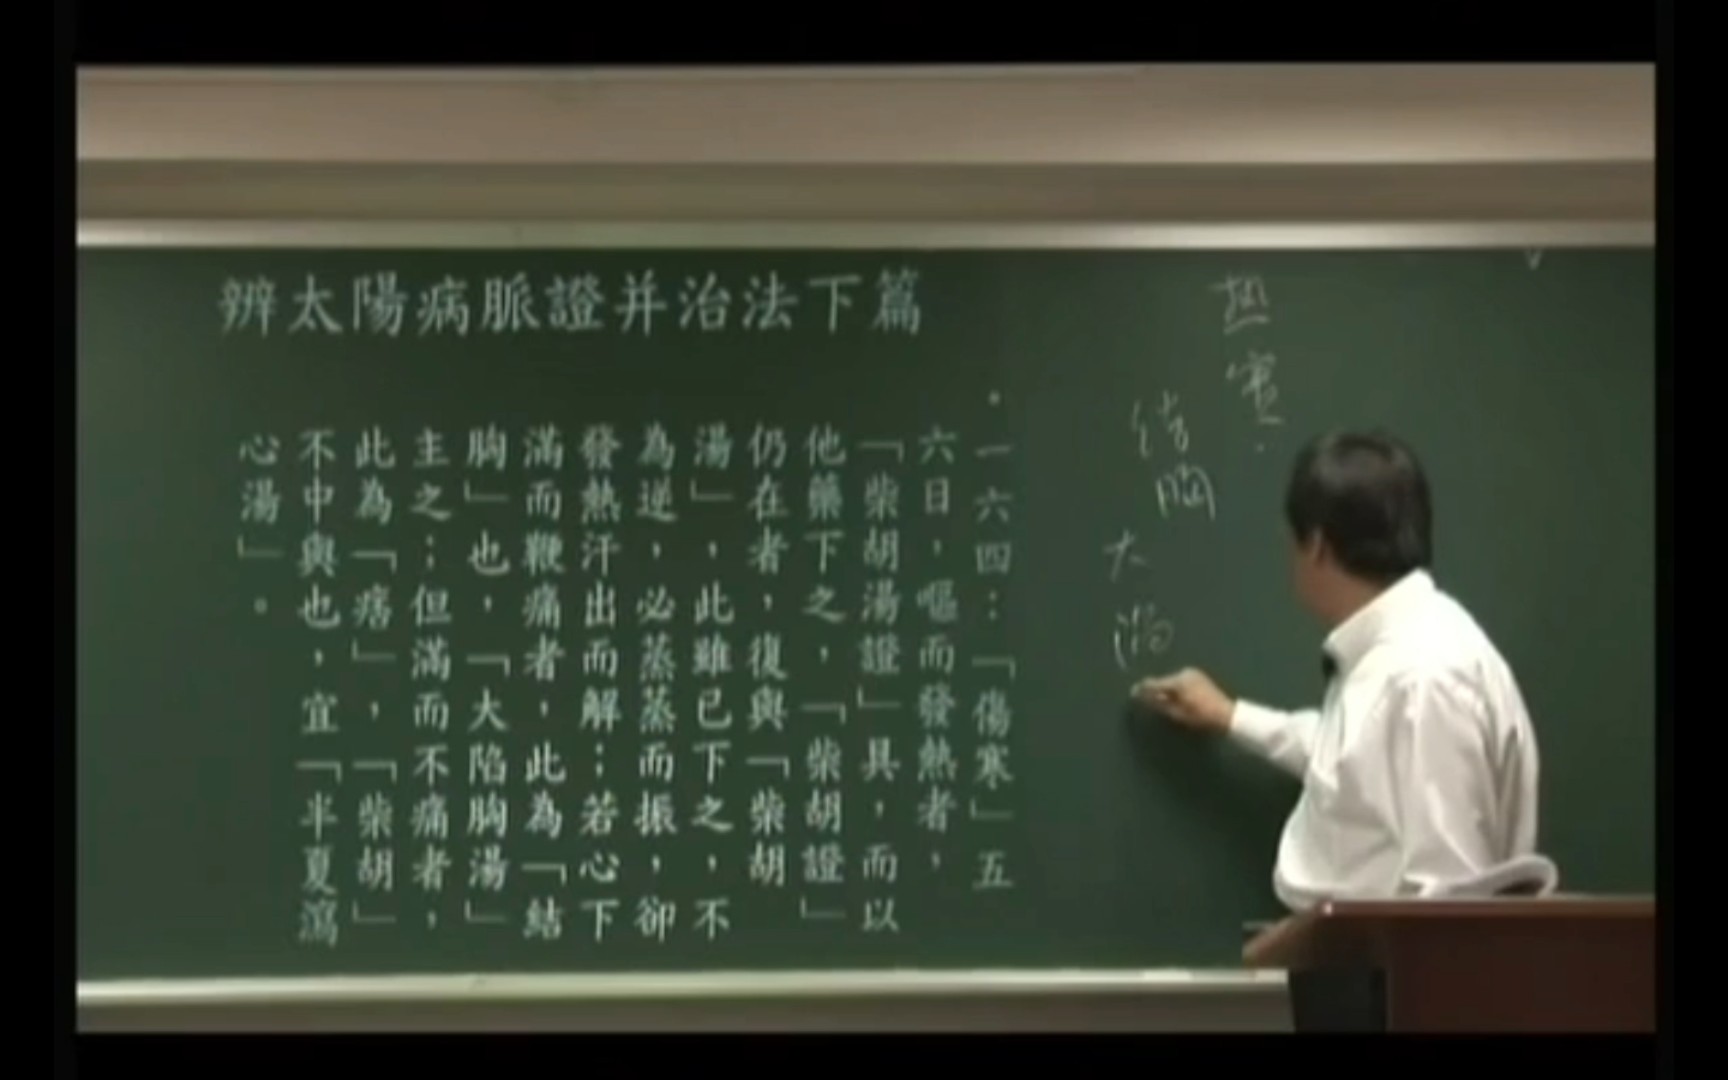 辨太陽病脈證并治法下篇
．一六四：「傷寒」五
六日，嘔而發熱者，
「柴胡湯證」具，而以
他藥下之，「柴胡證」
仍在者，復與「柴胡
湯」，此雖已下之，不
為逆，必蒸蒸而振，卻
發熱汗出而解；若心下
滿而鞭痛者，此為「結
胸」也，「大陷胸湯」
主之；但滿而不痛者，
此為「痞」，「柴胡」
不中與也，宜「半夏瀉
心湯」。
热實
結胸
大